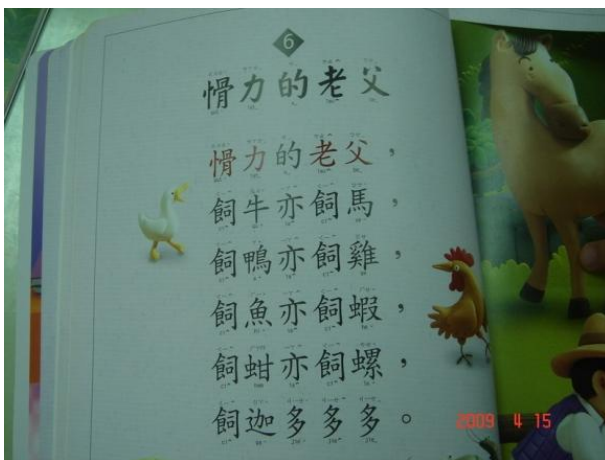 6
憒力的老父
憒力的老父，
飼牛亦飼馬，
飼鴨亦飼雞，
飼魚亦飼蝦，
飼蚶亦飼螺，
飼迦多多多。
2009 4 15